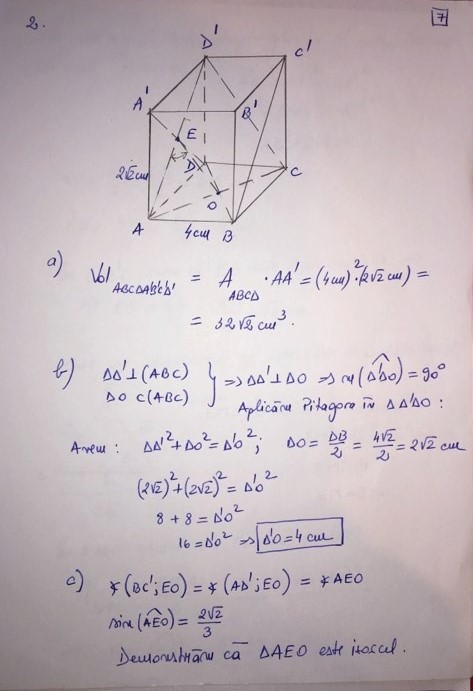 2.
7
D'
C'
A'
B'
E
2√2 cm
D
C
O
A
4cm
B
a) Vol ABCDA'B'C'D' = A ABCD · AA' = (4cm)² · (2√2 cm) =
= 32√2 cm³.
b) DD' ⊥ (ABC)
DO ⊂ (ABC) } => DD' ⊥ DO => m(D'DO) = 90°
Aplicăm Pitagora în ΔD'DO :
Avem : DD'² + DO² = D'O² ; DO = DB/2 = 4√2/2 = 2√2 cm
(2√2)² + (2√2)² = D'O²
8 + 8 = D'O²
16 = D'O² => D'O = 4 cm
c) ∢(BC';EO) = ∢(AD';EO) = ∢AEO
sin(AEO) = 2√2/3
Demonstrăm că ΔAEO este isoscel.